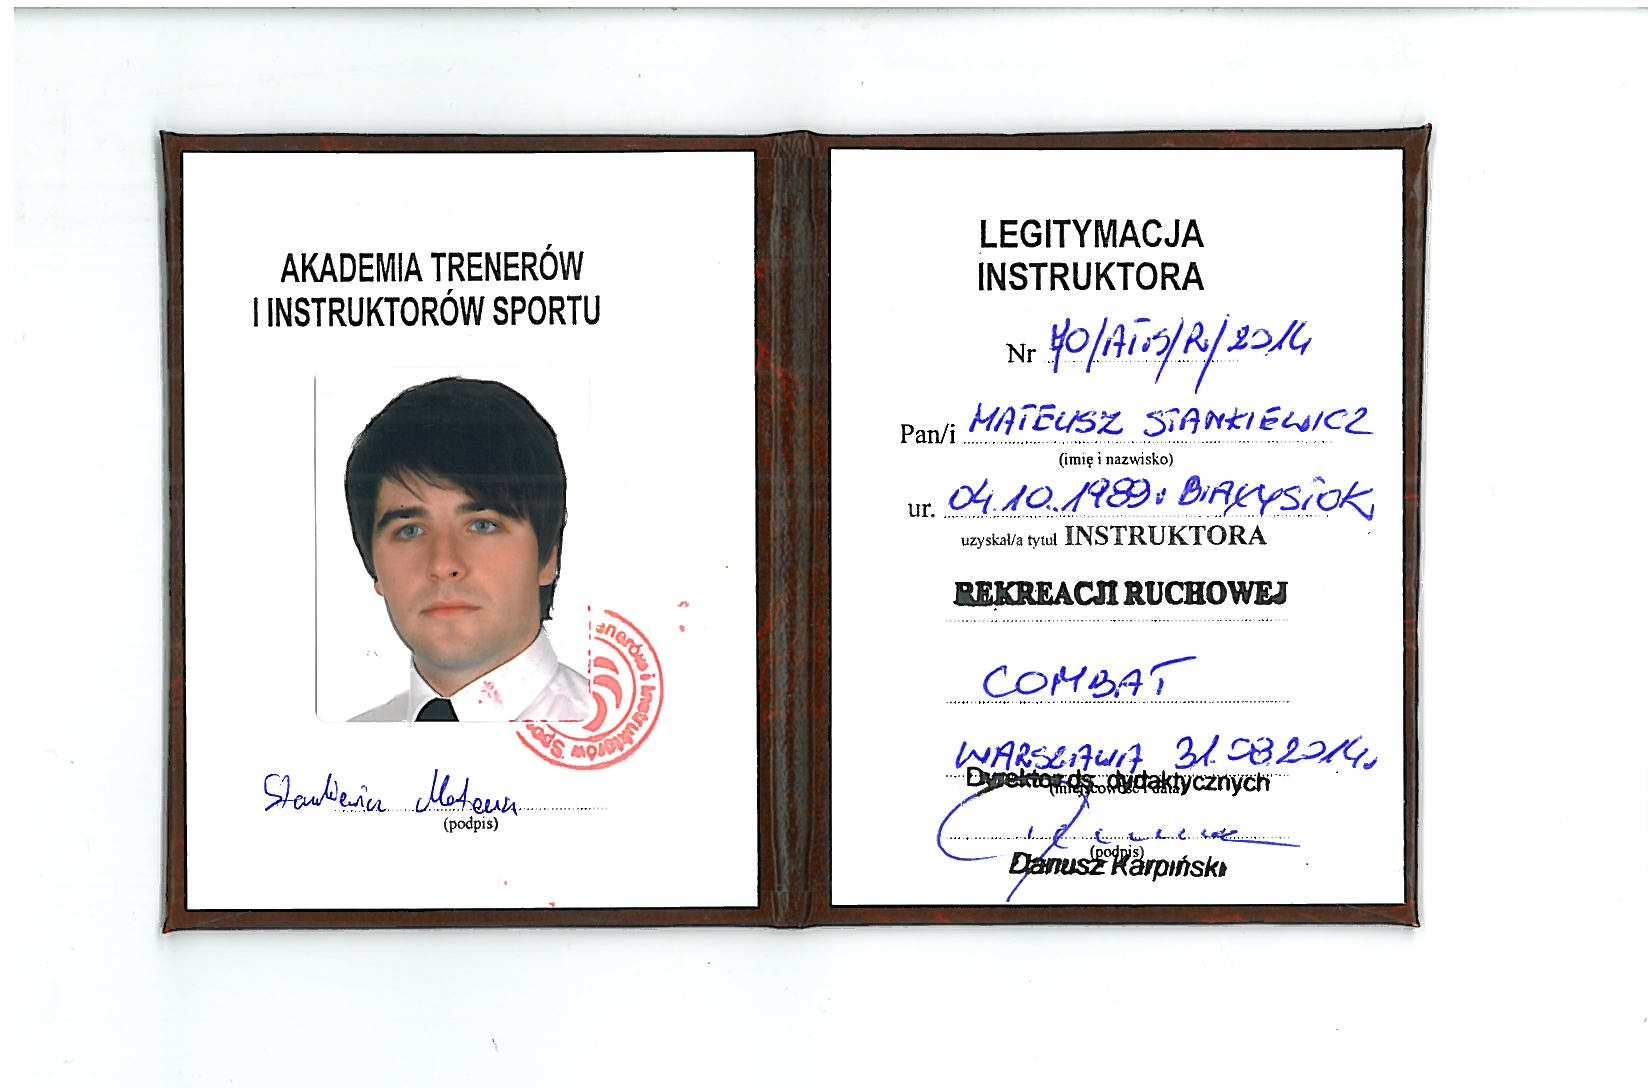 AKADEMIA TRENERÓW
I INSTRUKTORÓW SPORTU
enerów i Instruktorów Spor
Stankiewicz Mateusz
(podpis)
LEGITYMACJA
INSTRUKTORA
Nr 70/ATiS/R/2014
Pan/i MATEUSZ STANKIEWICZ
(imię i nazwisko)
ur. 04.10.1989. BIAŁYSTOK
uzyskał/a tytuł INSTRUKTORA
REKREACJI RUCHOWEJ
COMBAT
WARSZAWA 31.08.2014.
Dyrektor ds. dydaktycznych
(miejscowość i data)
(podpis)
Dariusz Karpiński